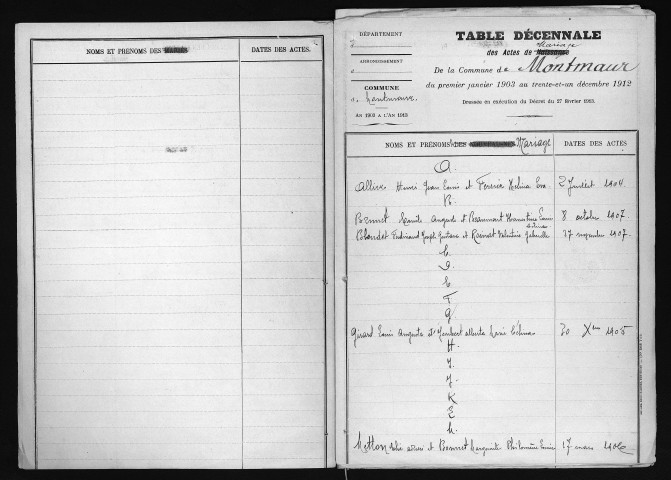 NOMS ET PRÉNOMS DES MARIÉS
DATES DES ACTES.
DÉPARTEMENT
d
ARRONDISSEMENT
d
COMMUNE
d
AN 1903 A L'AN 1913
TABLE DÉCENNALE
des Actes de Mariage
De la Commune de Montmaur
du premier janvier 1903 au trente-et-un décembre 1912
Dressée en exécution du Décret du 27 février 1913.
NOMS ET PRÉNOMS DES Mariage
DATES DES ACTES
A.
Henri Jean Louis et Héléna Eva 2 Juillet 1904.
B.
Bonnet Camille Auguste et Beaumont 8 octobre 1907.
Blandet Ferdinand Joseph Gustave et Valentine Gabrielle 17 novembre 1907.
C
D.
E
F
G
Girard Louis Auguste et Alberta Marie 30 Xbre 1905
H.
I.
J.
K
L
M.
Motton et Bonnet Marguerite Philomène 17 mars 1906